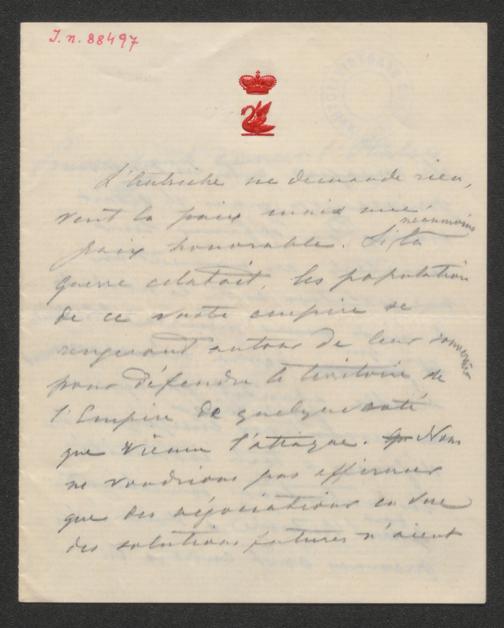 I. n. 88497
L'Autriche ne demande rien,
veut la paix mais une
néanmoins
paix honorable. Si la
guerre éclatait, les population
de ce vaste empire se
rengeront autour de leur souverain
pour défendre le territoire de
l'Empire de quelque coté
que vienne l'attaque. Nous
ne voudrions pas affirmer
que des négociations en vue
des solutions futures n'aient